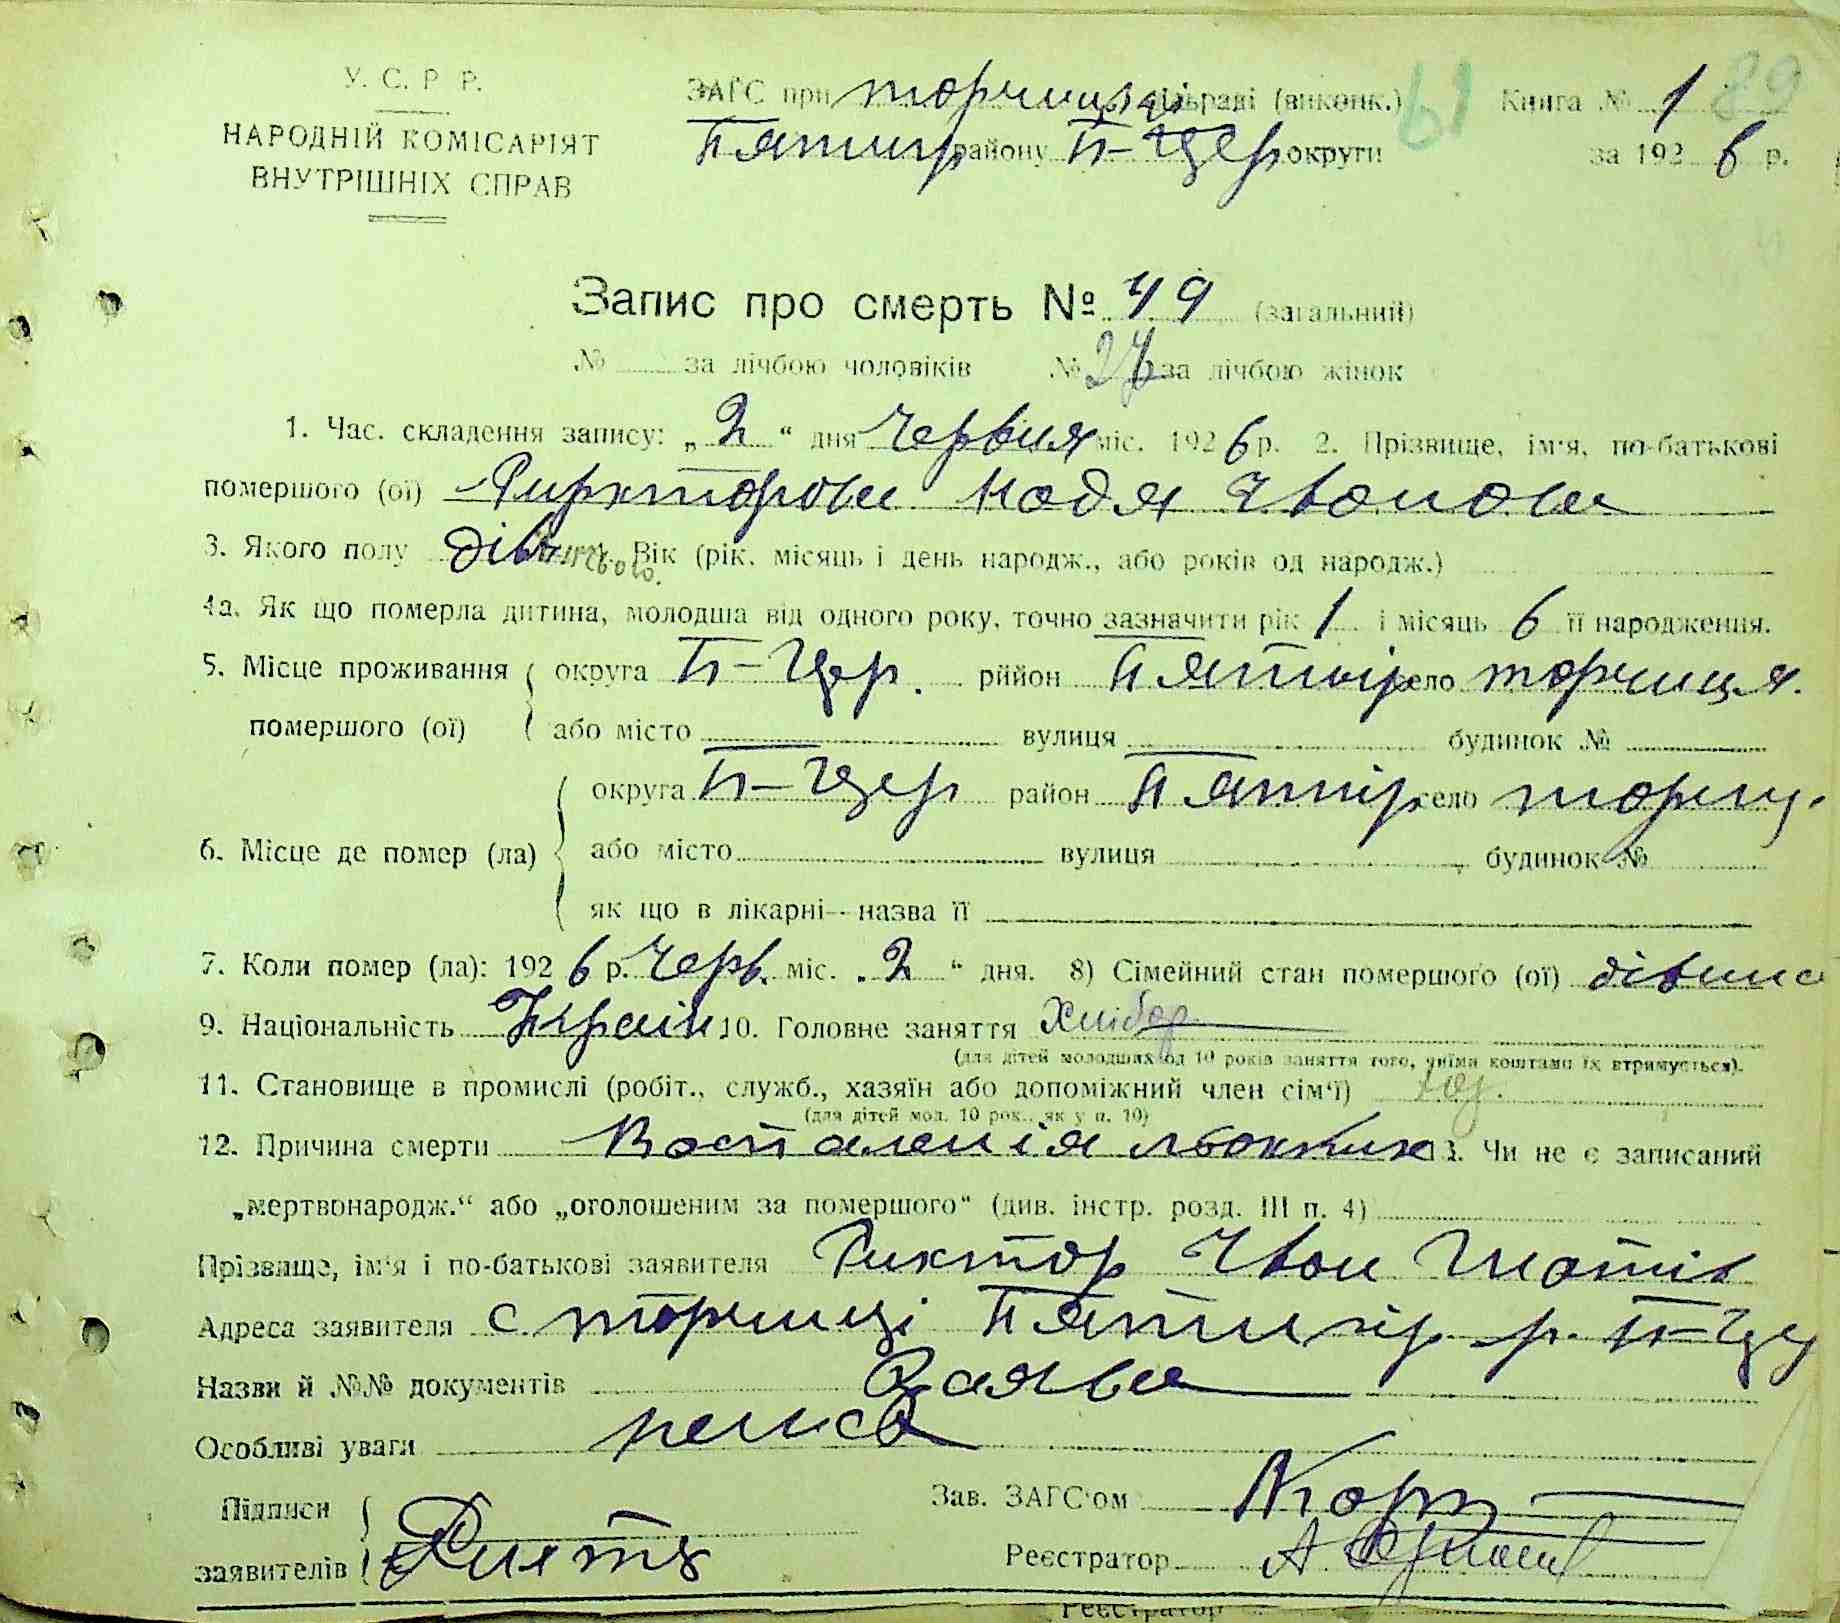 У. С. Р. Р.
НАРОДНІЙ КОМІСАРІЯТ
ВНУТРІШНІХ СПРАВ
ЗАГС при торчицькі сільраді (виконк.) 61 Книга № 1 89
Пятигір району Б-Цер округи за 1926 р.
Запис про смерть № 49 (загальний)
№ за лічбою чоловіків № за лічбою жінок
1. Час. складення запису: „2" дня червня міс. 1926 р. 2. Прізвище, ім'я, по-батькові
помершого (ої) Надя Івонова
3. Якого полу Вік (рік, місяць і день народж., або років од народж.)
4а. Як що померла дитина, молодша від одного року, точно зазначити рік 1 і місяць 6 її народження.
5. Місце проживання округа Б-Цер. рййон Пятигір село торчиця.
помершого (ої) або місто вулиця будинок №
округа Б-Цер район Пятигір село торчиц.
6. Місце де помер (ла) або місто вулиця будинок №
як що в лікарні--назва її
7. Коли помер (ла): 1926 р. черв. міс. „2" дня. 8) Сімейний стан помершого (ої) дівиця
9. Національність Україн 10. Головне заняття Хлібор
(для дітей молодших од 10 років заняття того, чиїми коштами їх втримується).
11. Становище в промислі (робіт., служб., хазяїн або допоміжний член сім'ї) хоз.
(для дітей мол. 10 рок., як у п. 10)
12. Причина смерти Воспаленія льохких 13. Чи не є записаний
„мертвонародж." або „оголошеним за помершого" (див. інстр. розд. III п. 4)
Прізвище, ім'я і по-батькові заявителя Риктор Івон
Адреса заявителя с торчиці Пятигір. р. Б-Це
Назви й №№ документів Заява
Особливі уваги
Підписи Зав. ЗАГС'ом
заявителів Реєстратор
Реєстратор